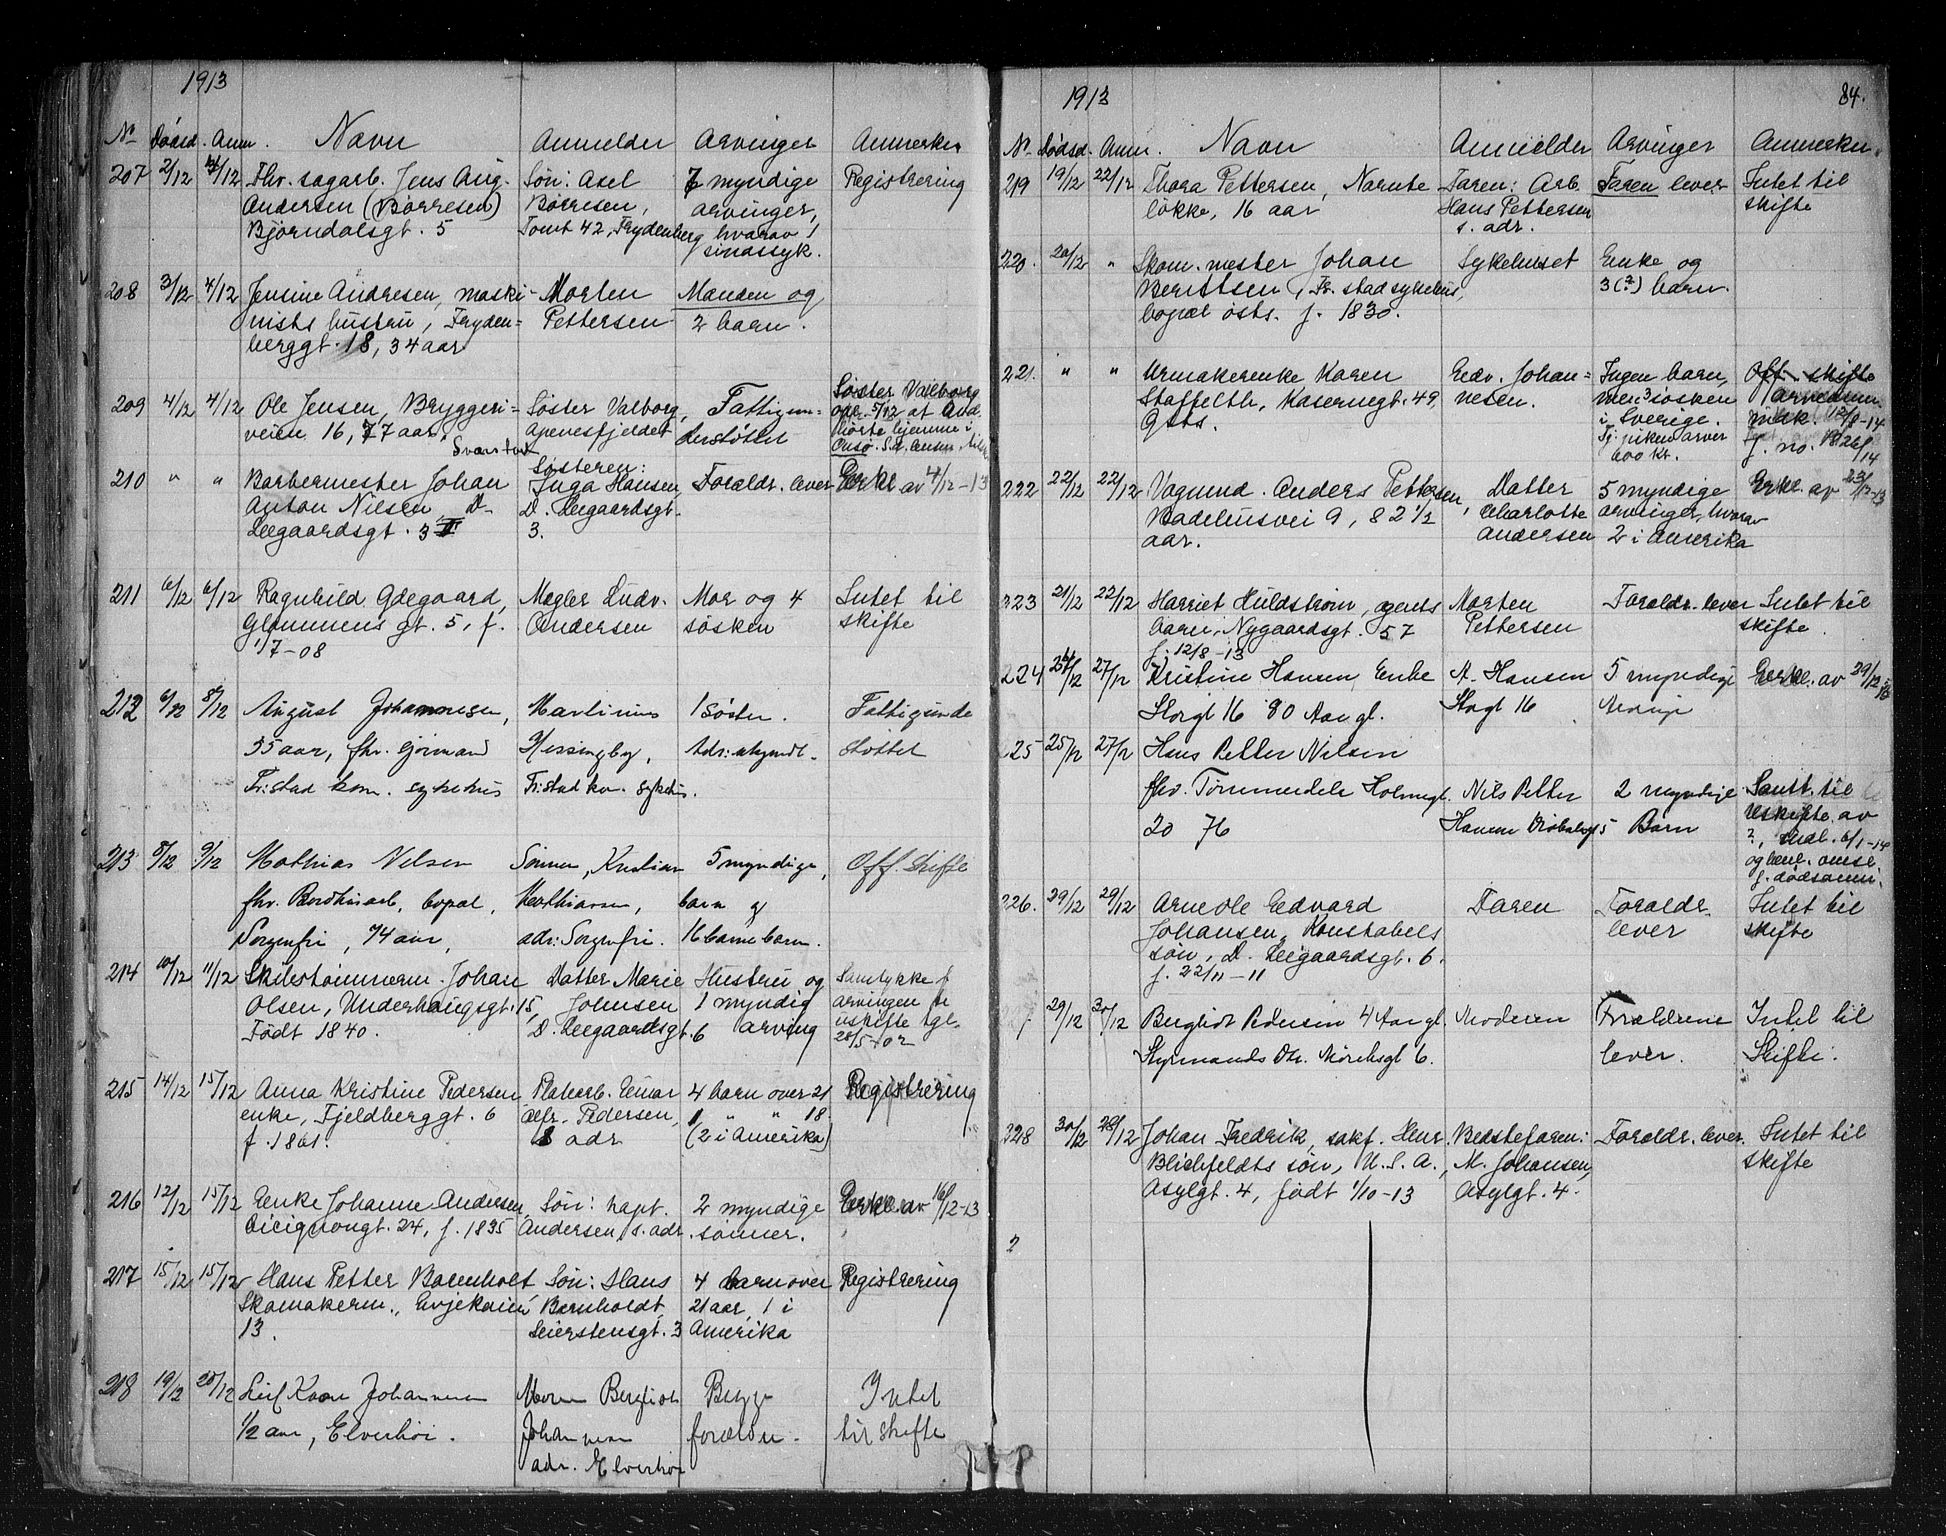 1913
No Dødsd. Anm. Navn Anmelder Arvinger Anmerkn.
207 2/12 4/12 Fhv. sagarb. Jens Aug. Søn: Axel 7 myndige Registrering
Andersen (Børresen) Børresen, arvinger,
Bjørndalsgt. 5 Tomt 42, Frydenberg hvorav 1
sindssyk.
208 3/12 4/12 Jensine Andresen, maski- Morten Manden og
nists hustru, Fryden- Pettersen 2 barn.
berggt. 18, 34 aar
209 4/12 4/12 Ole Jensen, Bryggeri- Søster Valborg, Fattigun- Søster Valborg
veien 16, 77 aar. Apenesfjeldet derstøttet opr. 5/12 at avd.
hørte hjemme i
Onsø.
210 " " Barbermester Johan Søsteren: Forældr. lever Erkl. av 4/12-13
Anton Nilsen, D- Inga Hansen,
Leegaardsgt. 3 II D. Leegaardsgt.
3.
211 6/12 6/12 Ragnhild Ødegaard, Megler Ludv. Mor og 4 Intet til
Glommens gt. 5, f. Andersen søsken skifte
1/7-08
212 6/12 8/12 August Johannesen, Martinius 1 søster. Fattigunder
55 aar, fhv. Messingby, Adr: ukjendt. støttet
Fr:stad kom. sykehus Fr:stad ko. sykehus.
213 8/12 9/12 Mathias Nilsen Sønnen, Kristian 5 myndige, Off. Skifte
fhv. bopæl, Mathiasen, barn og
Sorgenfri, 74 aar, adr: Sorgenfri. 16 barnebarn.
214 10/12 11/12 Skibstømmerm. Johan Datter Marie Hustru og Samtykke f.
Olsen, Underhaugsgt. 15, Johnsen 1 myndig arvingen til
Født 1840. D. Leegaardsgt. 6 arving uskifte tgl.
28/5-02
215 14/12 15/12 Anna Kristine Pedersen Platearb. Einar 4 barn over 21 Registrering
enke, Fjeldberggt. 6 Alfr. Pedersen, 1 " " 18.
f. 1861. s adr (2 i Amerika)
216 12/12 15/12 Enke Johanne Andersen, Søn: kapt. 2 myndige Erkl. av 16/12-13
Cicignongt. 24, f. 1835 Andersen, s. adr. sønner.
217 15/12 15/12 Hans Petter Barnholt Søn: Hans 4 barn over Registrering
Skomakerm., Evjekaien Barnholdt, 21 aar, 1 i
13. Seierstensgt. 3 Amerika
218 19/12 20/12 Leif Kaare Johannesen Moren Bergliot Begge Intet
1/2 aar, Elverhøi. Johannesen forældre. til skifte
adr. Elverhøi
1913 84.
No Dødsd. Anm. Navn Anmelder Arvinger Anmerkn.
219 19/12 22/12 Thora Pettersen, Narnte Faren: Arb. Faren lever Intet til
løkke, 16 aar Hans Pettersen skifte
s. adr.
220. 20/12 " Skom. mester Johan Sykehuset Enke og
Berntsen, Fr. stad sykehus, 3 (?) barn.
bopæl østs. f. 1830.
221. " " Urmakerenke Karen Edv. Johan- Ingen barn, Off. skifte
Staffelth, Kasernegt. 49, nesen. men 3 søsken
Østs. i Sverige.
Tj. piken arver
600 kr.
222 22/12 22/12 Vognmd. Anders Pettersen, Datter 5 myndige Erkl. av 23/12-13
Badehusvei 9, 82 1/2 Charlotte arvinger, hvorav
aar. Andersen 2 i Amerika
223 21/12 22/12 Harriet Huldstrøm, agents Morten Forældr. lever Intet til
barn, Nygaardsgt. 57 Pettersen skifte.
f. 12/8-13
224 26/12 27/12 Kristine Hansen, Enke A. Hansen 5 myndige Erkl. av 29/12-13
Storgt 16 80 Aar gl. Storgt 16
225 25/12 27/12 Hans Petter Nilsen
fhv. Tømmerdeler Holmegt. Nils Petter 2 myndige Samt. til
20 76 Hansen Barn uskifte av
?, tndl. 6/1-14
226. 29/12 29/12 Arne Ole Edvard Faren Forældr. Intet til
Johansen, Konstabels lever skifte
søn, D. Leegaardsgt. 6.
f. 22/11-11
29/12 30/12 Bergliot Pedersen 4 Aar gl. Moderen Forældrene Intet til
Styrmands Dtr. Mørchsgt 6. lever. Skifte.
228 30/12 Johan Fredrik, sakf. Henr. Bedstefaren: Forældr. lever. Intet til
Blichfeldts søn, U.S.A., M. Johansen, skifte
Asylgt. 4, født 1/10-13 Asylgt. 4.
2